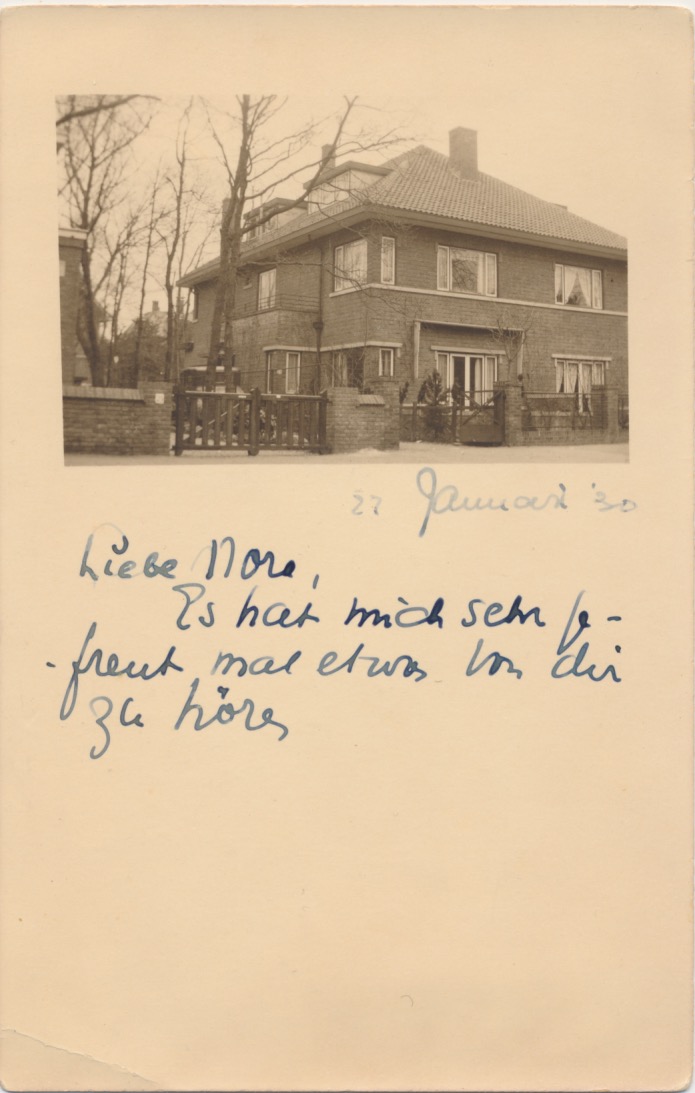 27 Januari '30
Liebe Nora,
Es hat mich sehr ge-
-freut mal etwas von dir
zu hören